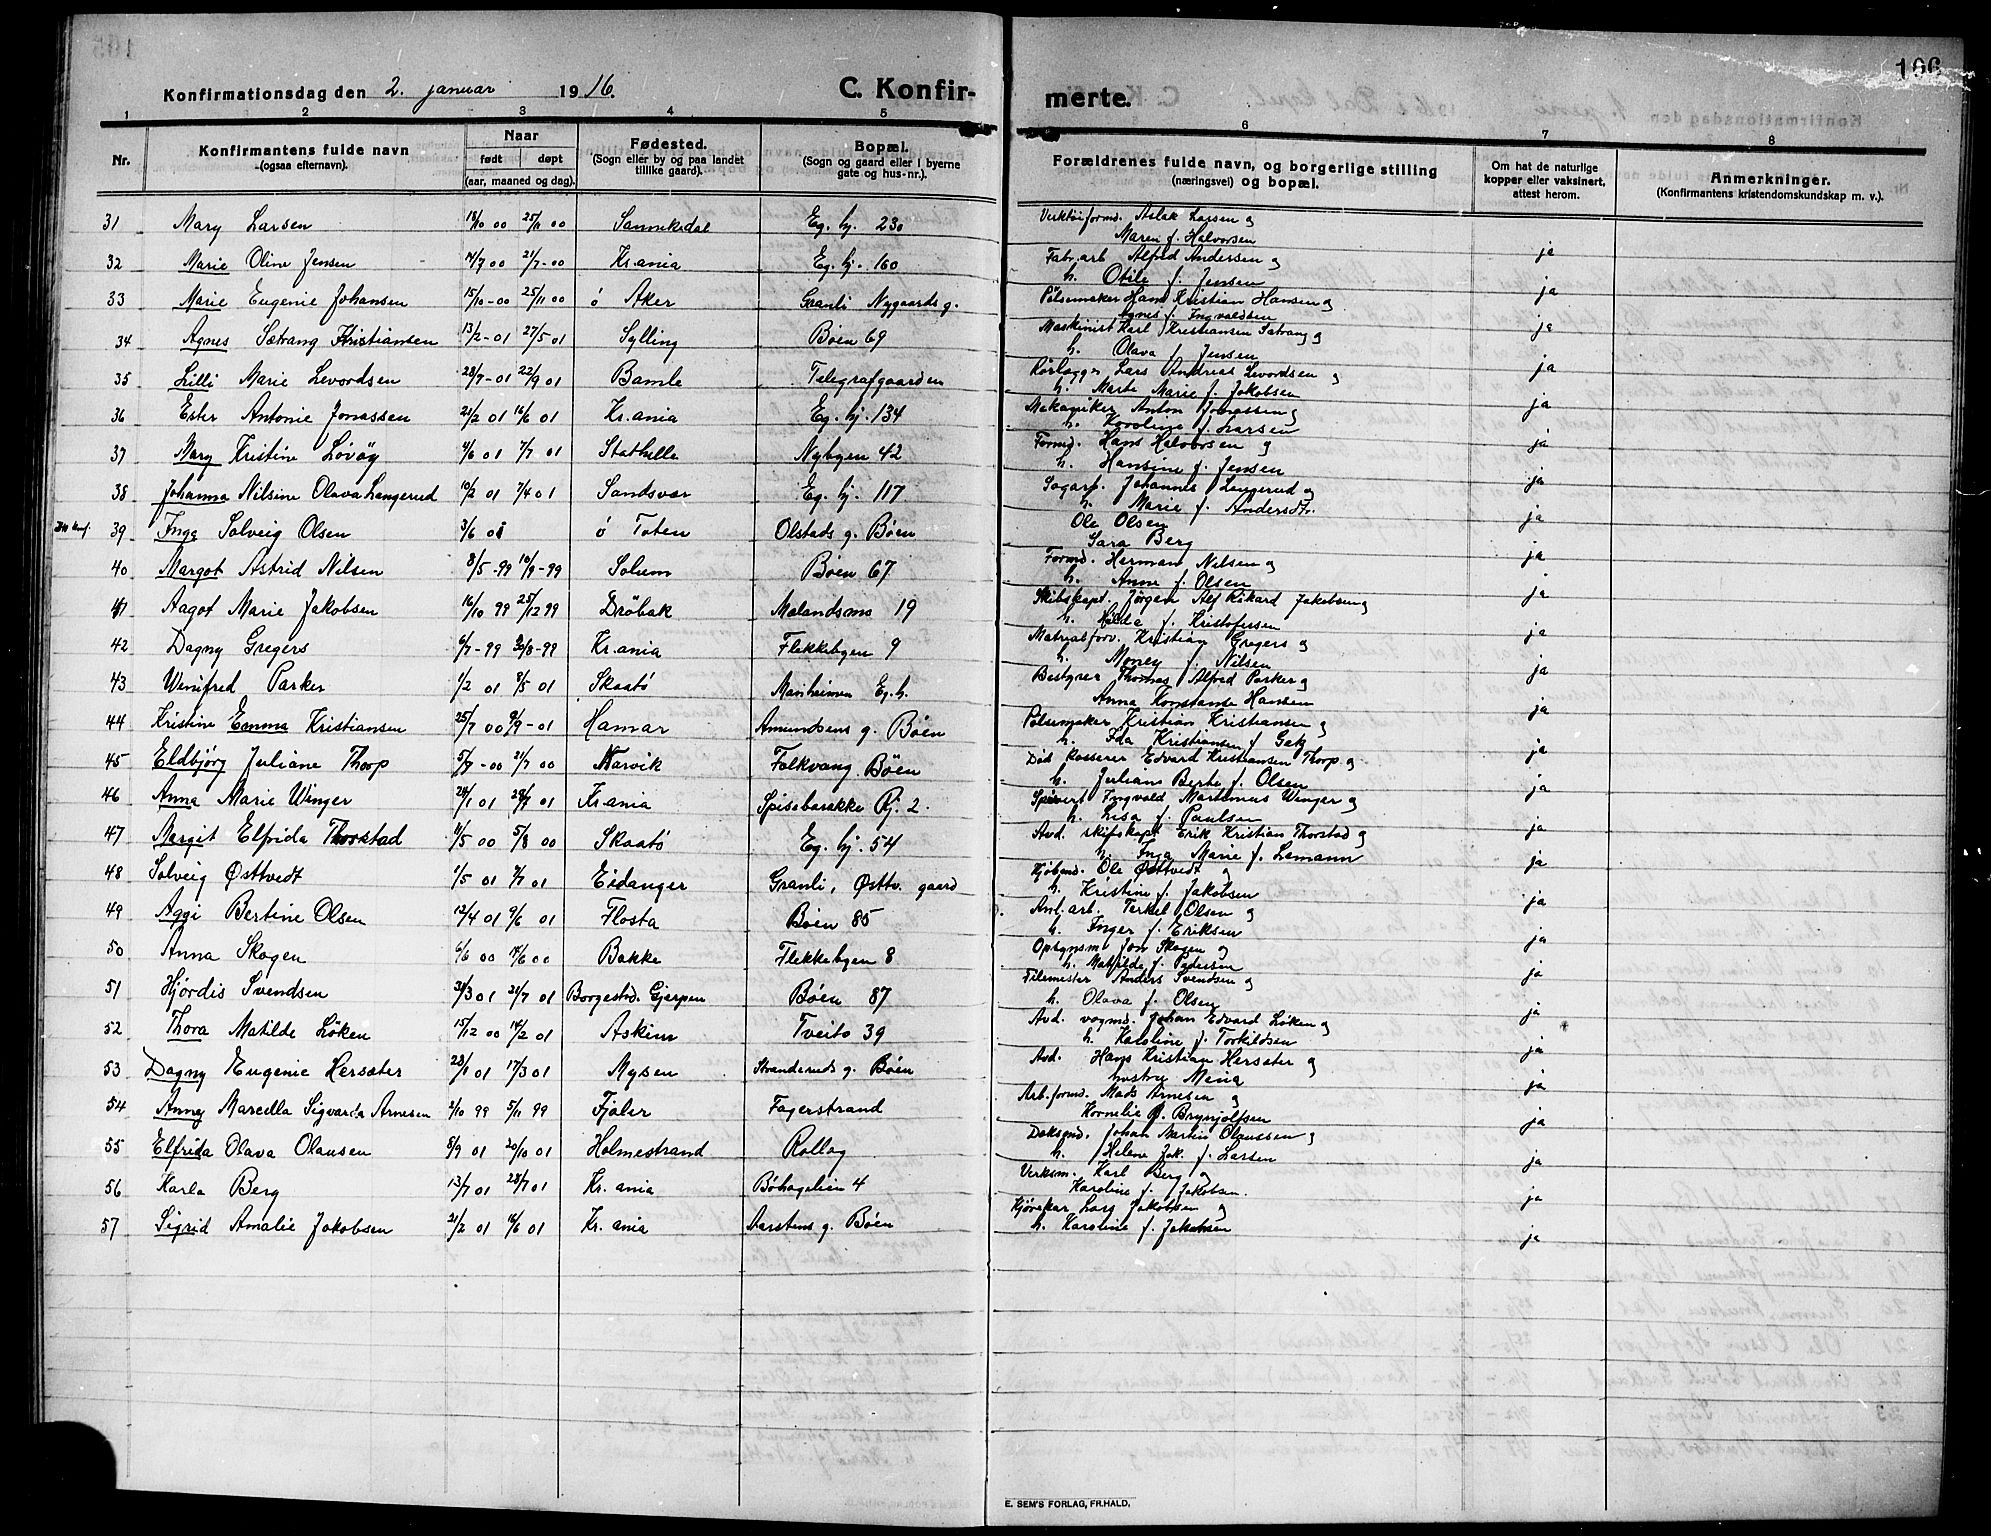 106
Konfirmationsdag den 2. januar 1916.
C. Konfir-
merte.
1 2 3 4 5 6 7 8
Nr.
Konfirmantens fulde navn
(ogsaa efternavn).
Naar
født døpt
(aar, maaned og dag).
Fødested.
(Sogn eller by og paa landet
tillike gaard).
Bopæl.
(Sogn og gaard eller i byerne
gate og hus-nr.).
Forældrenes fulde navn, og borgerlige stilling
(næringsvei) og bopæl.
Om hat de naturlige
kopper eller vaksinert,
attest herom.
Anmerkninger.
(Konfirmantens kristendomskundskap m. v.).
31 Mary Larsen 18/10 00 25/11 00 Sannikedal Eg. hj. 230 Verktøiformd. Aslak Larsen og
Maren f. Halvorsen ja
32 Marie Oline Jensen 14/7 00 21/7-00 Kr.ania Eg. hj. 160 Fabr.arb Alfred Andersen og
h. Otile f. Jensen ja
33 Marie Eugenie Johansen 15/10-00 25/11 00 ö Aker Granli Nygaards g. Pølsemaker Hans Kristian Hansen og
Agnes f. Ingvaldsen ja
34 Agnes Sætrang Kristiansen 13/2-01 27/5 01 Sylling Bøen 69 Maskinist Karl Kristiansen Sætrang og
h. Olava f. Jensen ja
35 Lilli Marie Levordsen 28/7-01 22/9 01 Bamle Telegrafgaarden Rørlægger Lars Andreas Levordsen og
h. Marte Marie f. Jakobsen ja
36 Ester Antonie Jonassen 21/2 01 16/6 01 Kr.ania Eg. hj. 134 Mekaniker Anton Jonassen og
h. Karoline f. Larsen ja
37 Mary Kristine Løvøy 4/6 01 7/7 01 Stathelle Nybyen 42 Formd. Hans Halvorsen og
h. Hansine f. Jensen ja
38 Johanna Nilsine Olava Langerud 10/2 01 7/4 01 Sandsvær Eg. hj. 117 Sagarb. Johannes Langerud og
h. Marie f. Andersdtr. ja
39 Inga Solveig Olsen 3/6 01 ö Toten Olstads g. Bøen Ole Olsen
Sara Berg ja
40 Margot Astrid Nilsen 8/5-99 10/9-99 Solum Bøen 67 Formd. Herman Nilsen og
h. Anne f. Olsen ja
41 Aagot Marie Jakobsen 16/10 99 25/12 99 Drøbak Mælandsmo 19 Skibskapt. Jørgen Alf Rikard Jakobsen og
h. Hilda f. Kristofersen ja
42 Dagny Gregers 6/7-99 30/8-99 Kr.ania Flekkebyen 9 Matrialforv. Kristian Gregers og
h. Money f. Nilsen ja
43 Winifred Parker 1/2 01 8/5 01 Skaatø Manheimen Eg.h. Bestyrer Thomas Alfred Parker og
Anna Konstanse Hansen ja
44 Kristine Emma Kristiansen 25/7 00 8/9-01 Hamar Amundsens g. Bøen Pølsemaker Kristian Kristiansen og
h. Ida Kristiansen f. ja
45 Eldbjørg Juliane Thorp 5/7-00 21/7 00 Narvik Folkvang Bøen Død Kasserer Edvard Kristiansen Thorp og
h. Juliane Berte f. Olsen ja
46 Anna Marie Winger 24/1 01 28/7 01 Kr.ania Spisebarakke Rj. 2. Spisvert Ingvald Martinius Winger og
h. Lisa f. Paulsen ja
47 Margit Elfrida Thorstad 4/5 00 5/8 00 Skaatø Eg. hj. 54 Avd. skibskapt Erik Kristian Thorstad og
h. Inga Marie f. Lemann ja
48 Solveig Østtvedt 1/5 01 7/7 01 Eidanger Granli, Østtv. gaard Kjøbmd. Ole Østtvedt og
h. Kristine f. Jakobsen ja
49 Aggi Bertine Olsen 12/4 01 9/6 01 Flosta Bøen 85 Anl.arb. Terkel Olsen og
h. Inger f. Eriksen ja
50 Anna Skogen 6/6 00 14/6 00 Bakke Flekkebyen 8 Opsynsm. Jon Skogen og
h. Matilde f. Pedersen ja
51 Hjørdis Svendsen 24/3 01 21/7 01 Borgestad. Gjerpen Bøen 87 Filemester Anders Svendsen og
h. Olava f. Olsen ja
52 Thora Matilde Løken 15/12 00 14/2 01 Askim Tveito 39 Avd. vognmd. Johan Edvard Løken og
h. Karoline f. Torkildsen ja
53 Dagny Eugenie Hersæter 23/1 01 17/3 01 Mysen Stranderuds g. Bøen Avd. Hans Kristian Hersæter og
hustru Mina ja
54 Anny Marcella Sigvarda Arnesen 2/10 99 5/11 99 Fjaler Fagerstrand Arb.formd. Mads Arnesen og
Kornelia B. Brynjolfsen ja
55 Elfrida Olava Olausen 8/9 01 20/10 01 Holmestrand Rollag Doksmd. Johan Martin Olaussen og
h. Helene Jak. f. Larsen ja
56 Karla Berg 13/7 01 28/7 01 Kr. ania Bøhagelien 4 Verksm. Karl Berg og
Karoline f. Jakobsen. ja
57 Sigrid Amalie Jakobsen 21/2 01 16/6 01 Kr. ania Aarstens g. Bøen Kjørekar Lars Jakobsen og
h. Karoline f. Jakobsen ja
E. SEM'S FORLAG, FR.HALD.